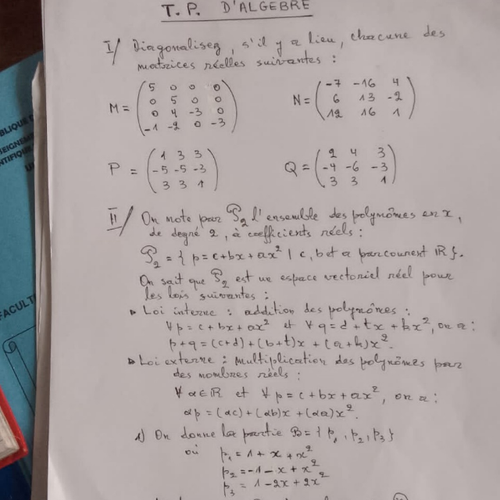 T.P. D'ALGEBRE
I/ Diagonalisez, s'il y a lieu, chacune des
matrices réelles suivantes :
M = (5 0 0 0
0 5 0 0
0 4 -3 0
-1 -2 0 -3)
N = (-7 -16 4
6 13 -2
12 16 1)
P = (1 3 3
-5 -5 -3
3 3 1)
Q = (2 4 3
-4 -6 -3
3 3 1)
II/ On note par P₂ l'ensemble des polynômes en x,
de degré 2, à coefficients réels :
P₂ = { p = c+bx+ax² | c, b et a parcourent ℝ }.
On sait que P₂ est un espace vectoriel réel pour
les lois suivantes :
▸ Loi interne : addition des polynômes :
∀p = c+bx+ax² et ∀q = d+tx+kx², on a :
p+q = (c+d)+(b+t)x+(a+k)x².
▸ Loi externe : multiplication des polynômes par
des nombres réels :
∀α∈ℝ et ∀p = c+bx+ax², on a :
αp = (αc)+(αb)x+(αa)x².
1) On donne la partie B = { p₁, p₂, p₃ }
où p₁ = 1 + x + x²
p₂ = -1 - x + x²
p₃ = 1 - 2x + 2x²
FACULT